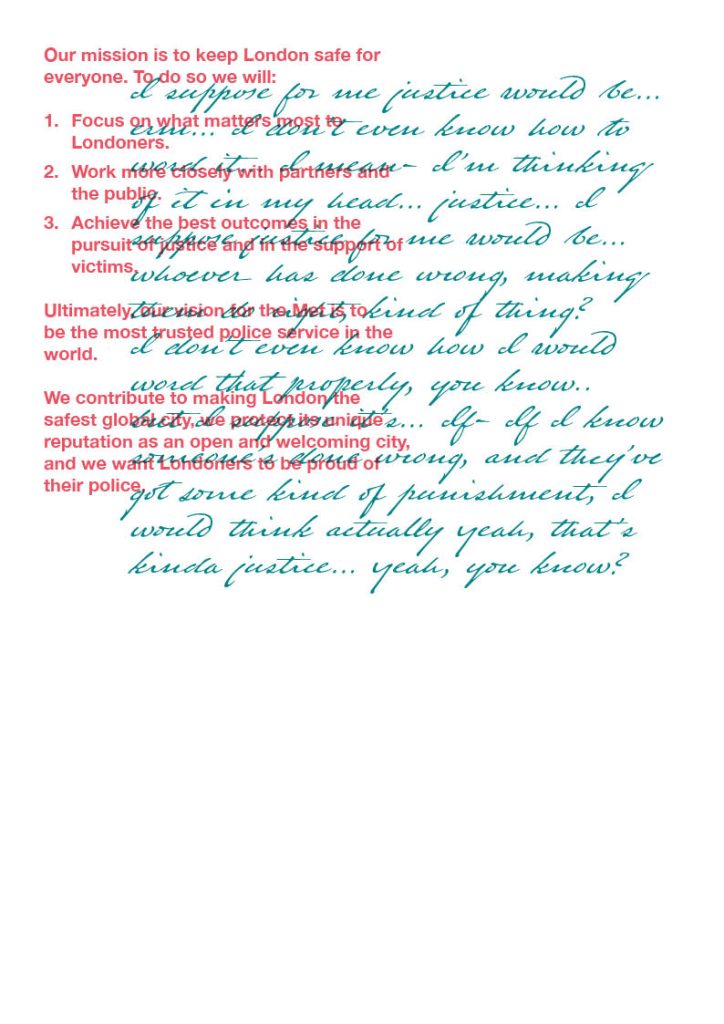 Our mission is to keep London safe for
everyone. To do so we will:
1. Focus on what matters most to
Londoners.
2. Work more closely with partners and
the public.
3. Achieve the best outcomes in the
pursuit of justice and in the support of
victims.
Ultimately, our vision for the Met is to
be the most trusted police service in the
world.
We contribute to making London the
safest global city, we protect its unique
reputation as an open and welcoming city,
and we want Londoners to be proud of
their police.
I suppose for me justice would be...
erm... I don't even know how to
word it... I mean- I'm thinking
of it in my head... justice... I
suppose justice for me would be...
whoever has done wrong, making
them do right, kind of thing?
I don't even know how I would
word that properly, you know..
but I suppose it's... If- If I know
someone's done wrong, and they've
got some kind of punishment, I
would think actually yeah, that's
kinda justice... yeah, you know?